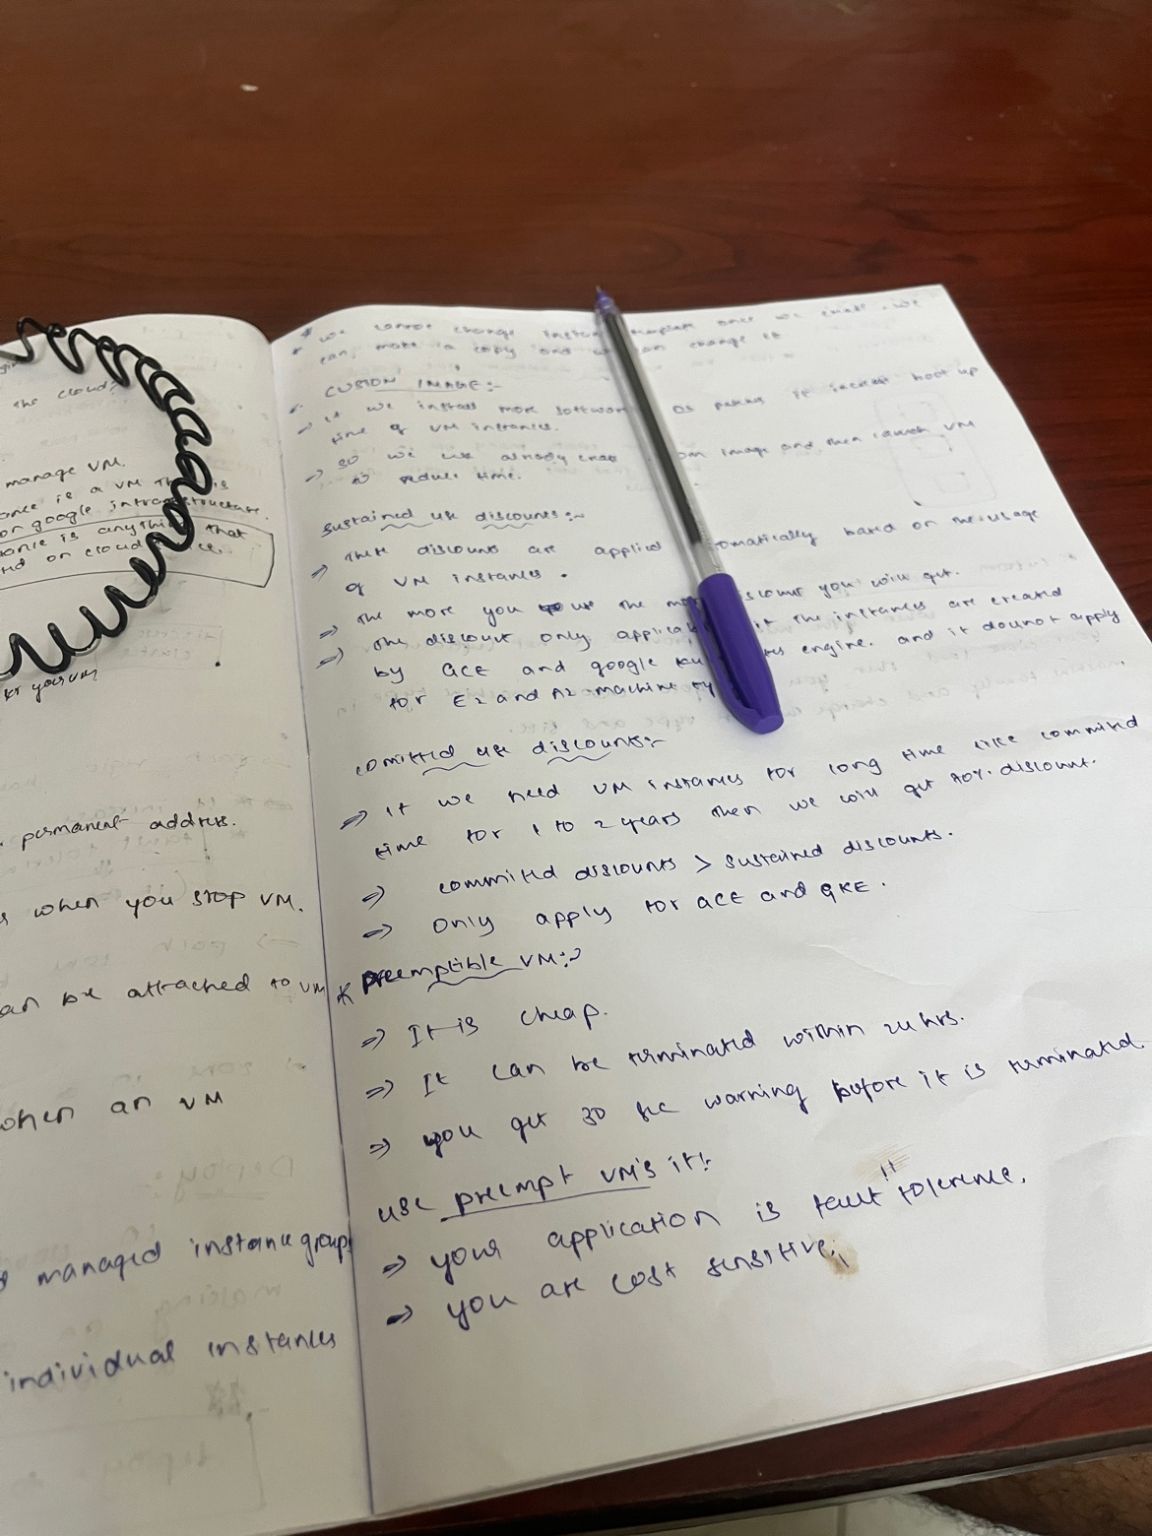 the cloud?
manage VM.
is a VM
on google infrastructure.
is anything that
on cloud
permanent address.
when you stop VM.
an be attached to VM
when an VM
managed instance groups
individual instances
* we cannot change once we create. we
can make a copy and can change it
CUSTOM IMAGE:-
→ if we install more software OS it increase boot up
time of VM instances.
→ so we image and then launch VM
to reduce time.
Sustained use discounts:~
⇒ these discounts are applied omatically based on the usage
of VM instances.
⇒ the more you use the discount you will get.
⇒ the discount only applica if the instances are created
by GCE and google engine. and it doesnot apply
for E2 and A2 machine ty
comitted use discounts:~
⇒ if we need VM instances for long time like commited
time for 1 to 2 years then we will get discount.
⇒ committed discounts > sustained discounts.
⇒ Only apply for GCE and GKE.
* preemptible VM:~
⇒ It is cheap.
⇒ It can be terminated within 24 hrs.
⇒ you get 30 sec warning before it is terminated.
use preempt VM's if:
⇒ your application is fault tolerence.
⇒ you are cost sensitive.